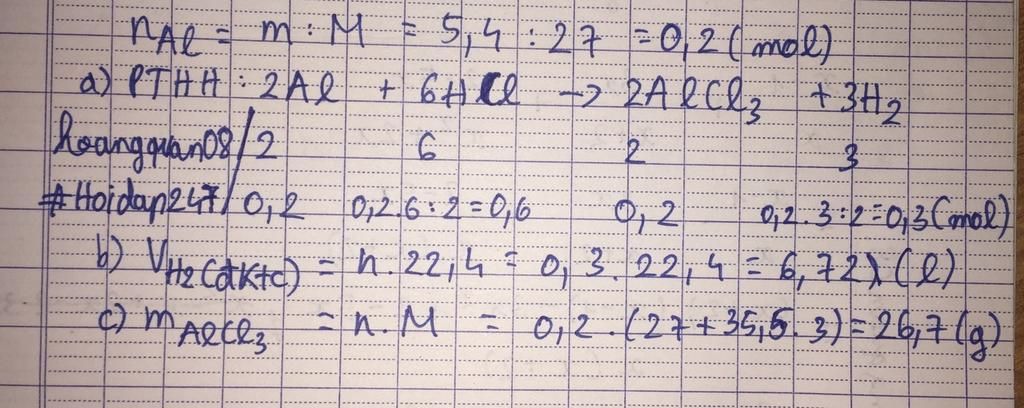 nAl = m : M = 5,4 : 27 = 0,2 (mol)
a) PTHH : 2Al + 6HCl → 2AlCl3 + 3H2
hoangquan08/ 2 6 2 3
#Hoidap247/ 0,2 0,2.6:2=0,6 0,2 0,2.3:2=0,3(mol)
b) VH2(đktc) = n.22,4 = 0,3.22,4 = 6,72 (l)
c) mAlCl3 = n.M = 0,2.(27+35,5.3)=26,7(g)